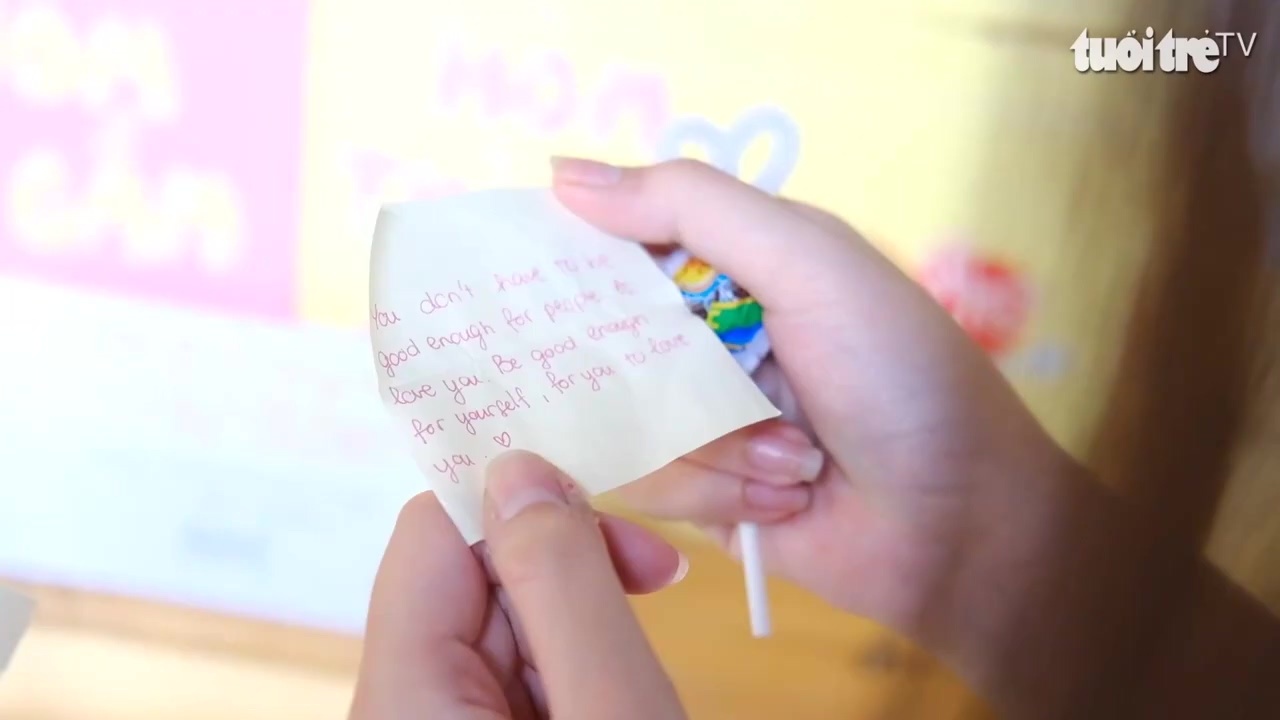 tuổi trẻ TV
CẢM
You don't have to be
good enough for people to
love you. Be good enough
for yourself, for you to love
you. ♡